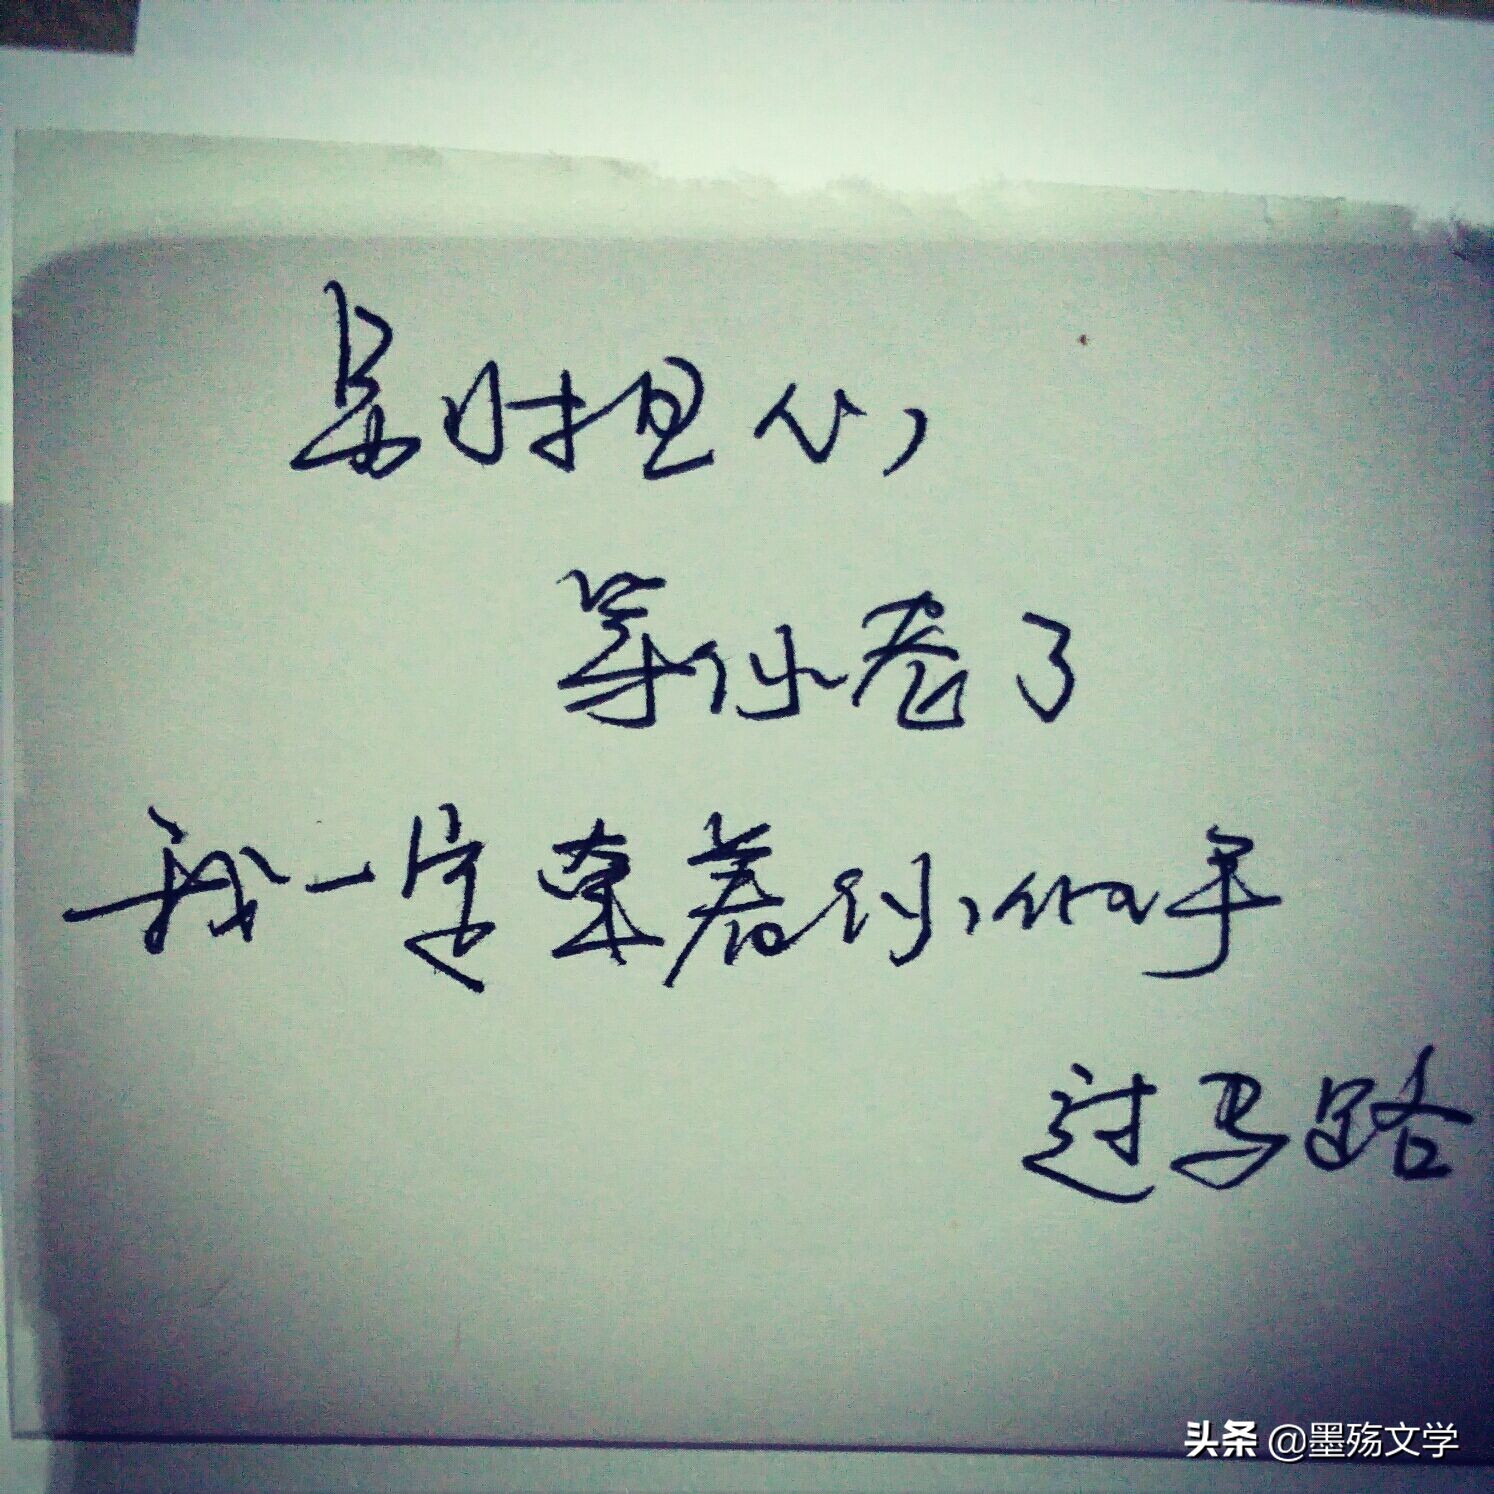 别担心,
等你老了
我一定牵着你的手
过马路
头条 @墨殇文学